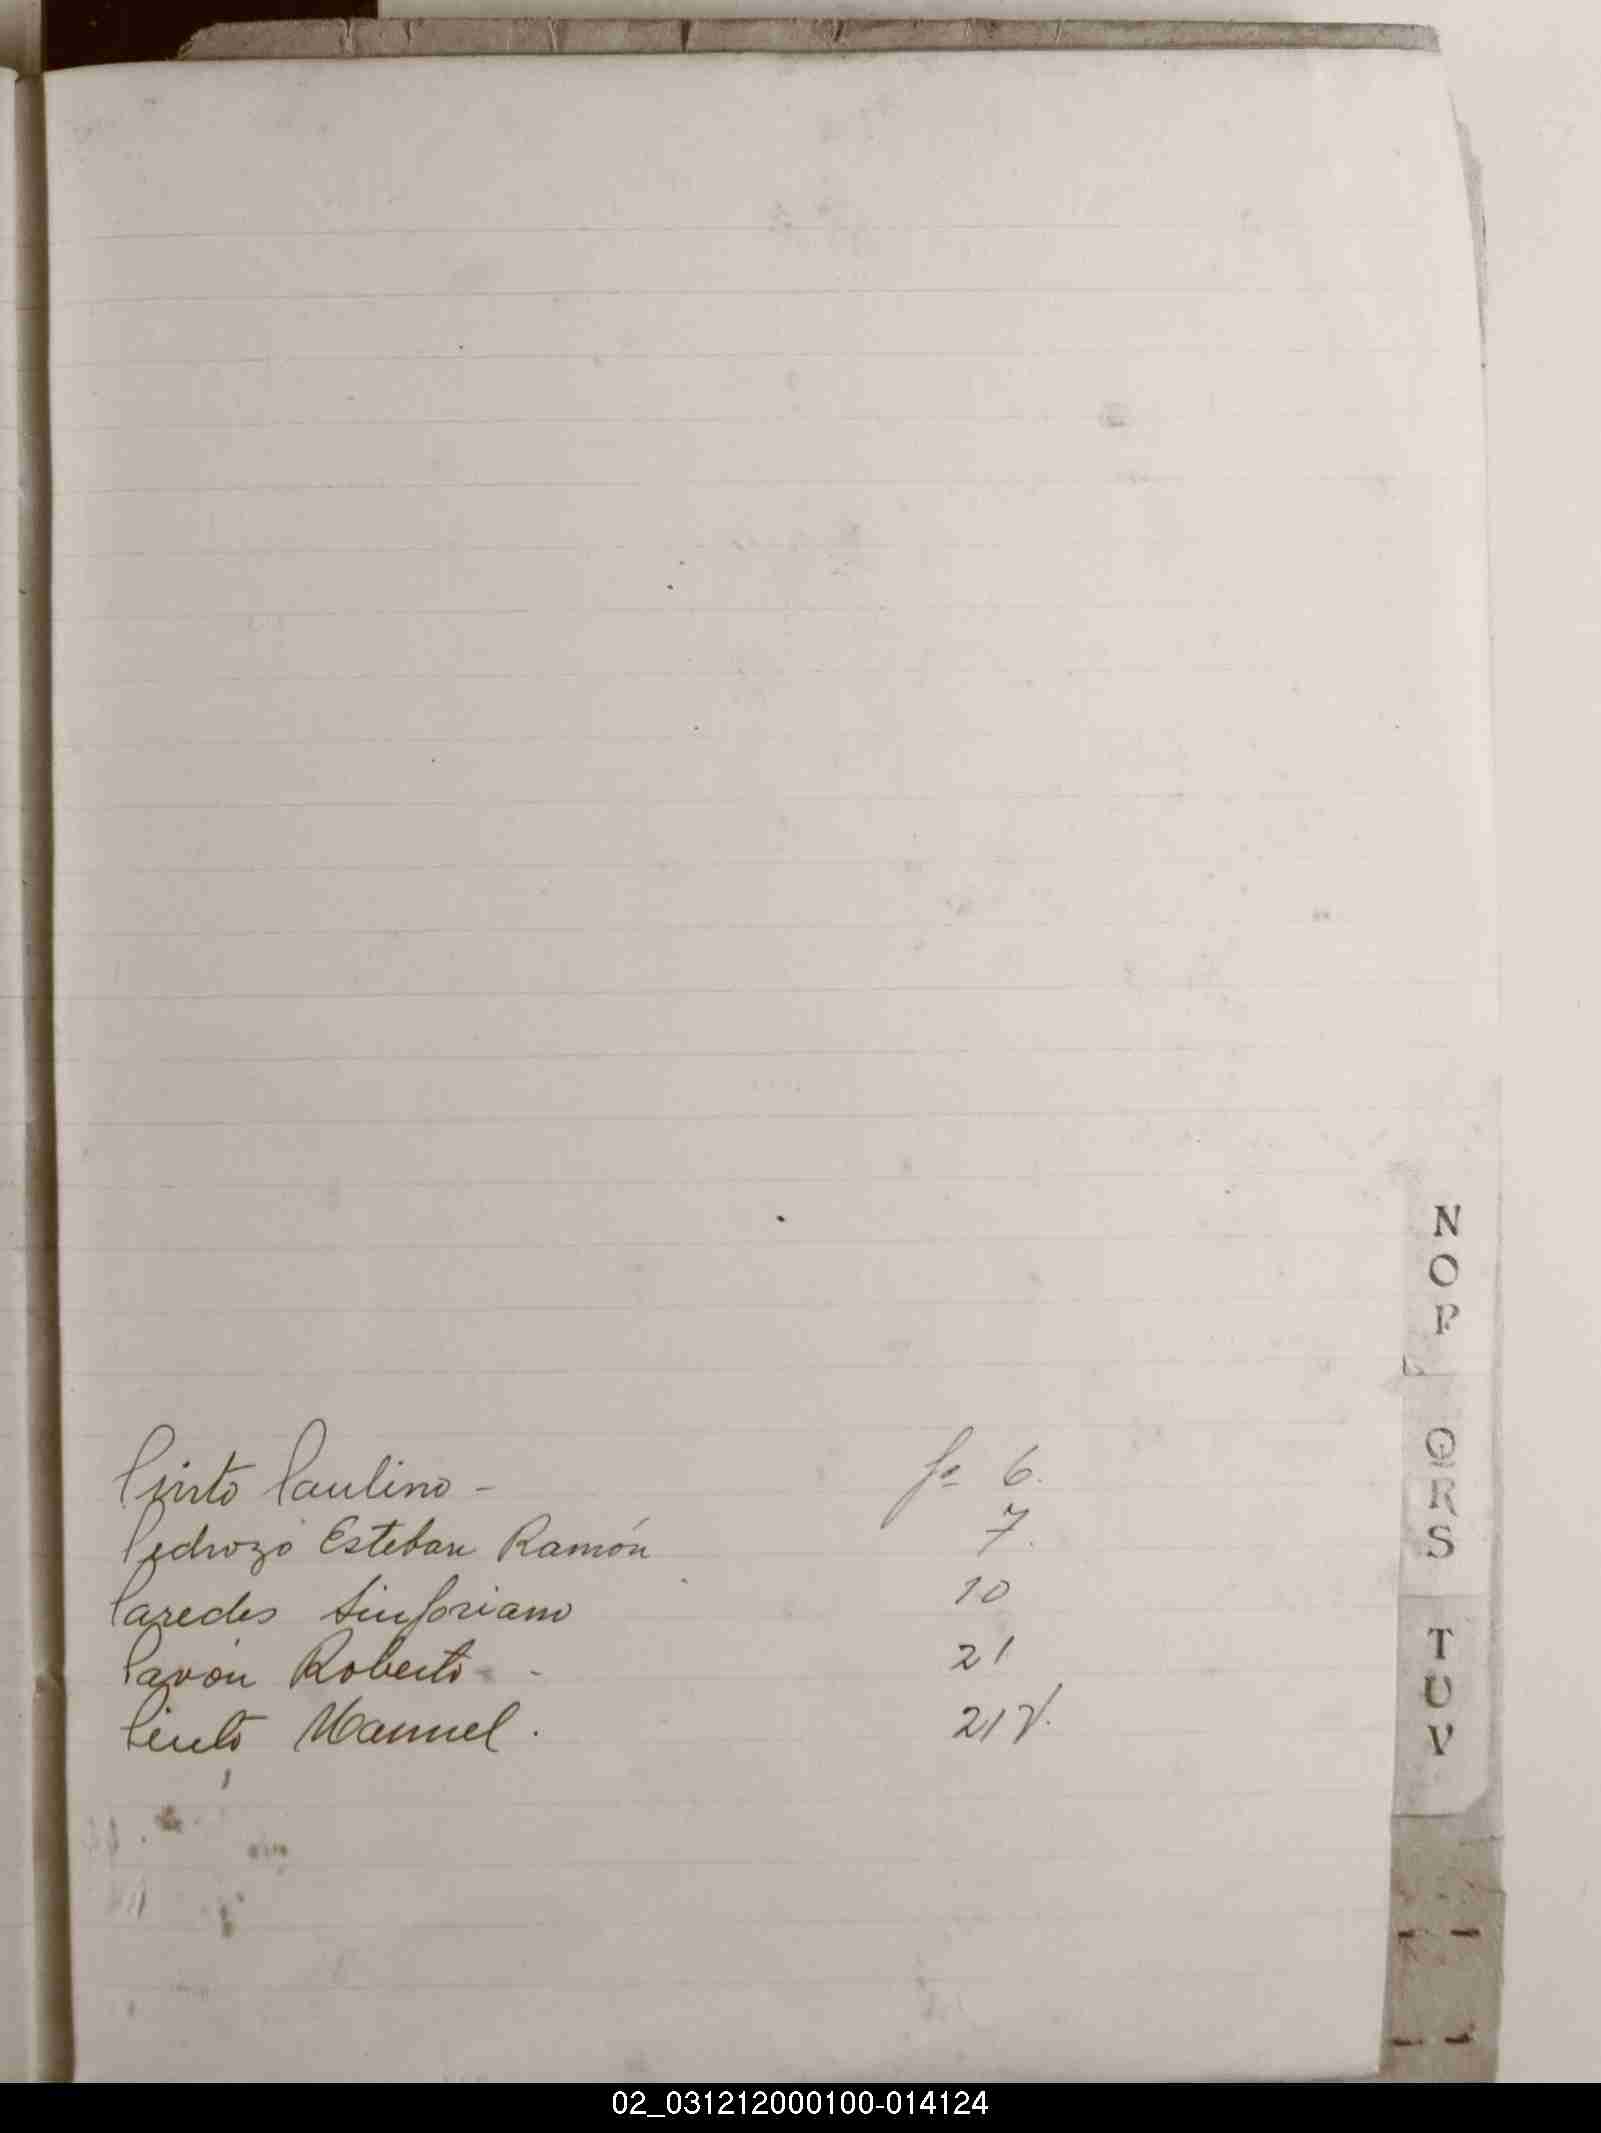 Pinto Paulino - fº 6.
Pedrozo Esteban Ramón 7.
Paredes Sinforiano 10
Pavón Roberto - 21
Pinto Manuel. 21 V.
N
O
P
Q
R
S
T
U
V
02_031212000100-014124